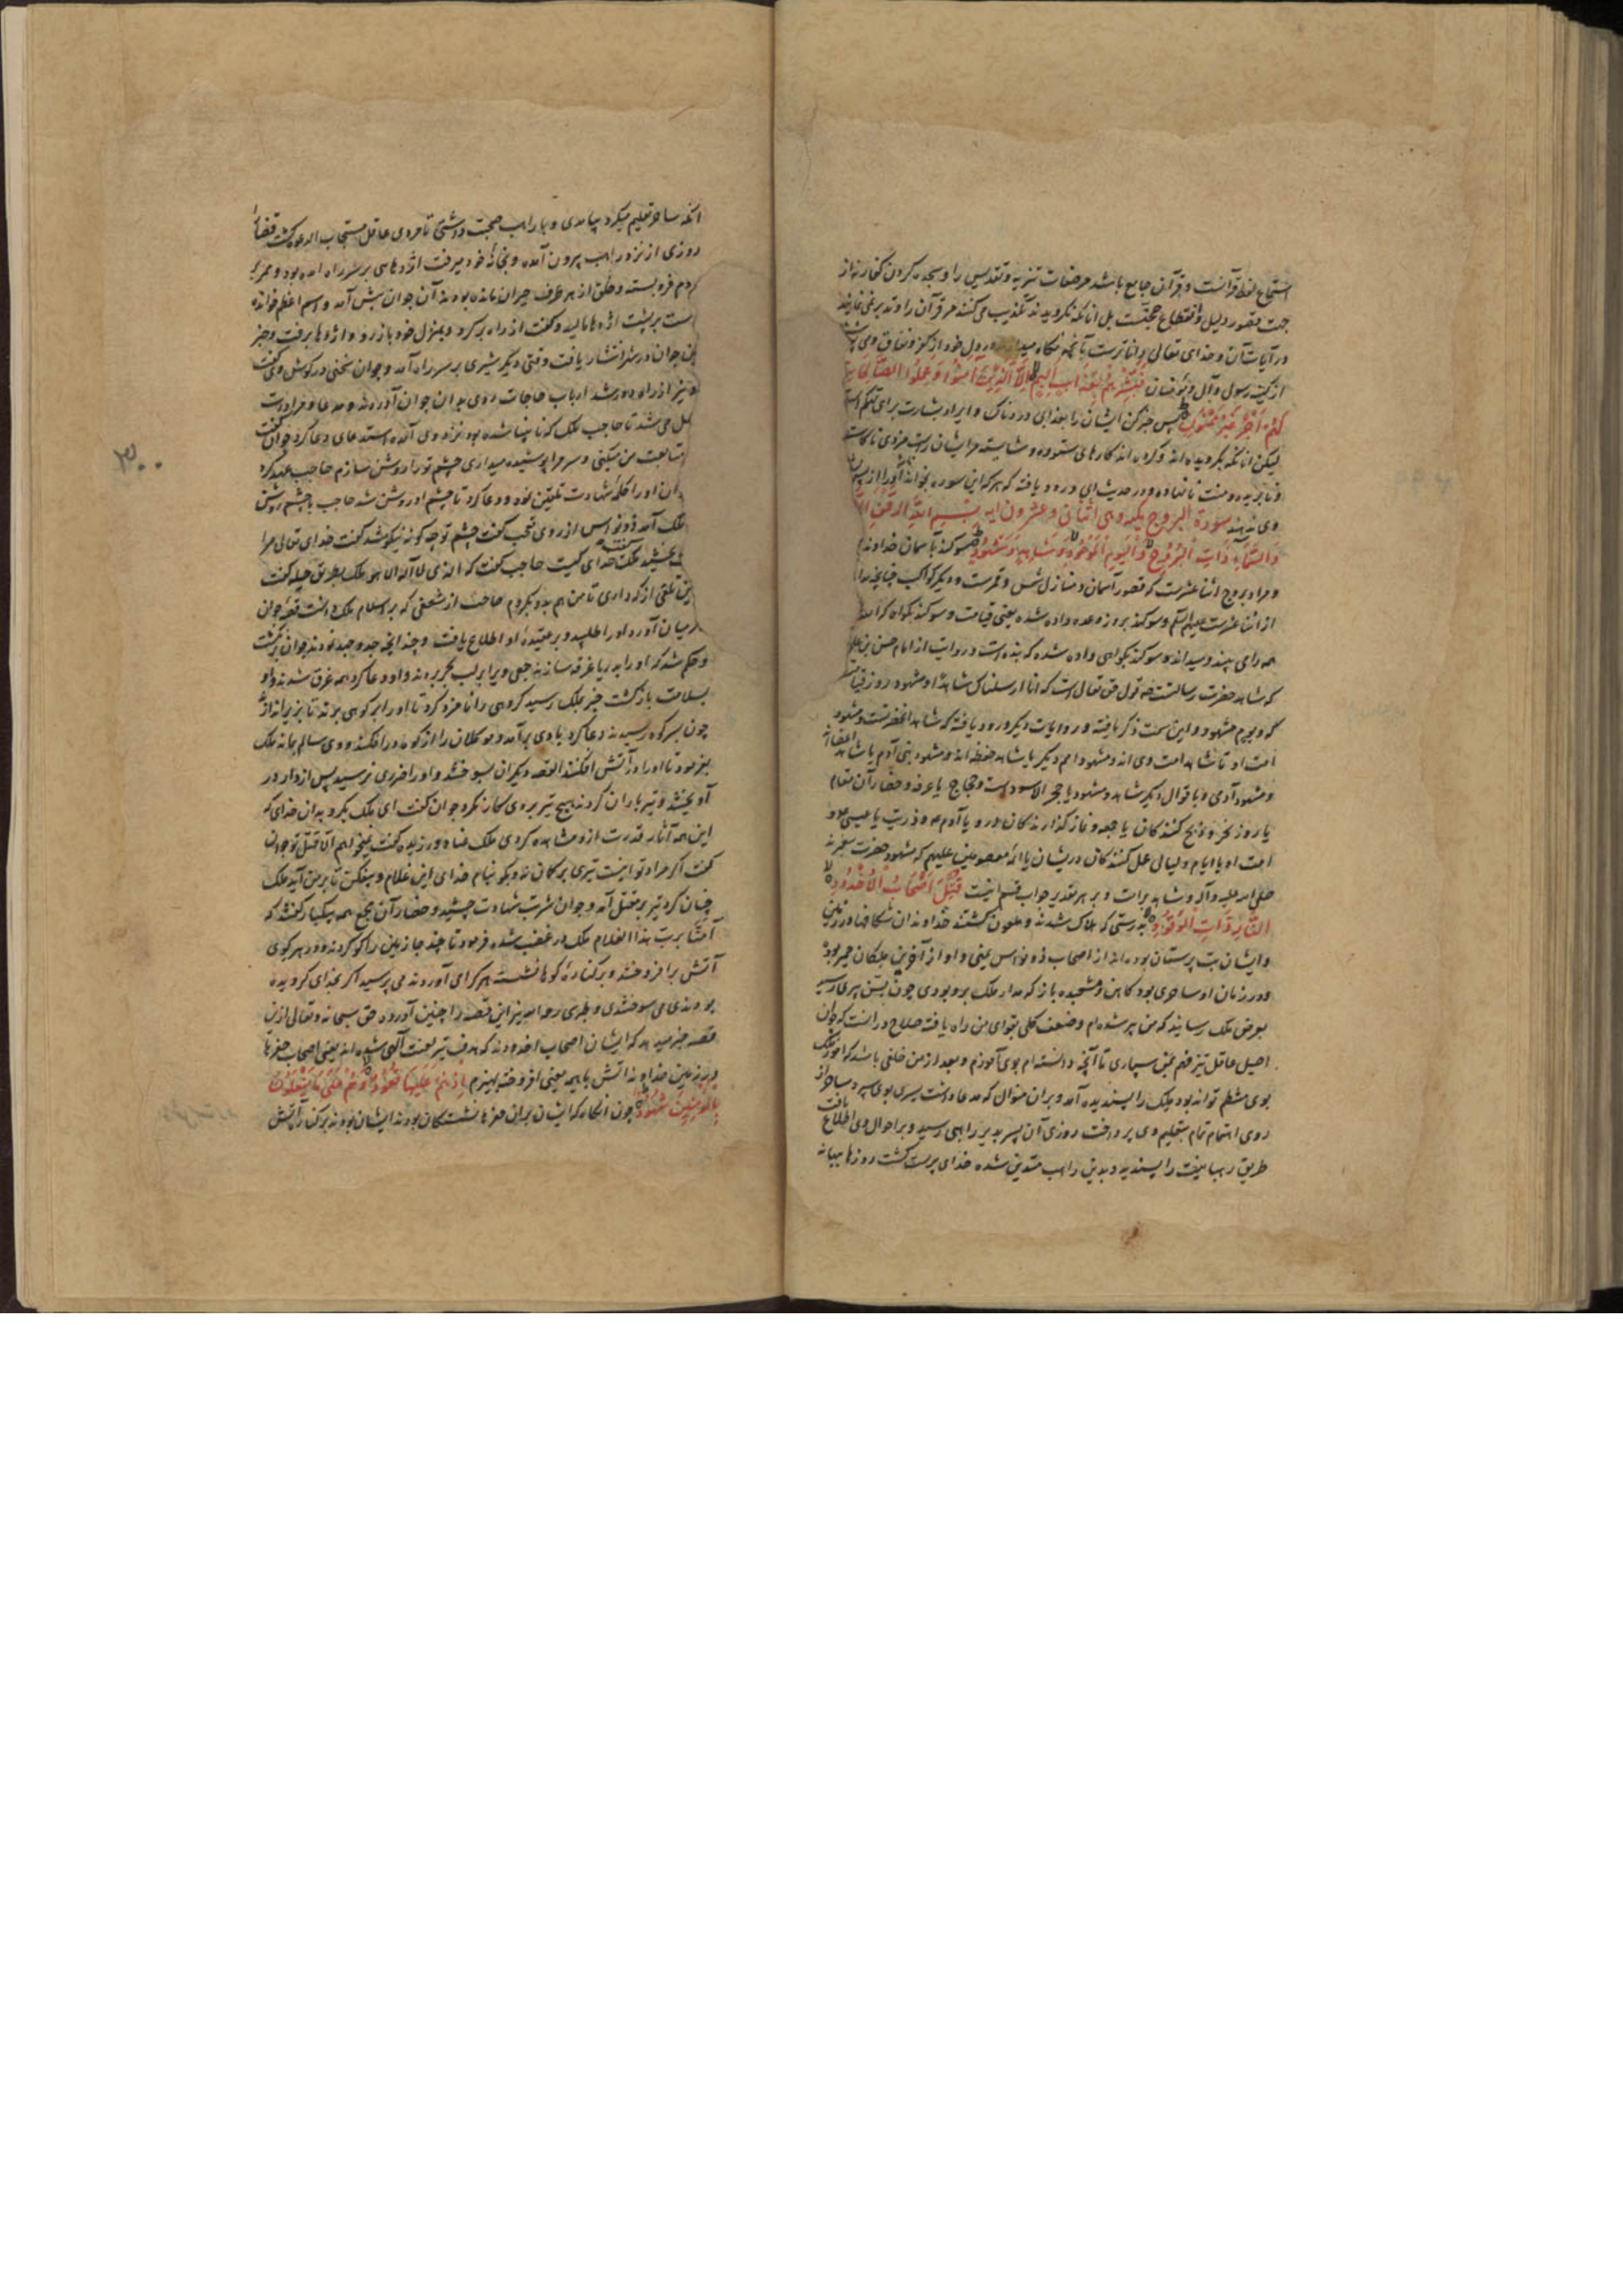 استماع لفظ قرآنست و قرآن جامع باشد مر صفات تنزیه و تقدیس را و سجده کردن کفار نه از
جهت قصور دلیل و انقطاع حجتست بل انانکه نکرویدند تکذیب می کنند مر قرآن را و تدبر نمی نمایند
در آیات آن و خدای تعالی داناترست بآنچه نکاه میدارند در دل خود از کفر و نفاق و
از کینه رسول و آل و مؤمنان فَبَشِّرْهُمْ بِعَذَابٍ أَلِيمٍ إِلَّا الَّذِينَ آمَنُوا وَعَمِلُوا الصَّالِحَاتِ
لَهُمْ أَجْرٌ غَيْرُ مَمْنُونٍ پس خبر کن ایشان را بعذابی دردناک و ایراد بشارت برای تهکم است
لیکن انانکه بکرویده اند و کرده اند کارهای ستوده و شایسته مر ایشان راست مزدی ناکاسته
و نابریده و منت نانهاده و در حدیث ابی ورود یافته که هر که این سوره بخواند
وی ندهند سورة البروج مکیه وهی اثنان و عشرون ایه بِسْمِ اللَّهِ الرَّحْمَنِ
وَالسَّمَاءِ ذَاتِ الْبُرُوجِ وَالْيَوْمِ الْمَوْعُودِ وَشَاهِدٍ وَمَشْهُودٍ سوکند بآسمان خداوند
و مراد بروج اثنا عشرست که قصور آسمان و منازل شمس و قمرست و دیکر کواکب چنانچه مراد
از اثنا عشرست علیهم السلم و سوکند بروز وعده داده شده یعنی قیامت و سوکند بکواه که امت
همه رای بیند و میداند و سوکند بکواهی داده شده که بنده است و روایت از امام حسن بن علی
که شاهد حضرت رسالتست چه قول حق تعالی است که انا ارسلناک شاهدا و مشهود روز قیامت
که و یوم مشهود و این سمت ذکر یافته و روایات دیکر ورود یافته که شاهد آنحضرتست و مشهود
امت او تا شاهد امت وی اند و مشهود امم دیکر یا شاهد حفظه اند و مشهود بنی آدم یا شاهد اعضا
و مشهود آدمی و باقوال دیکر شاهد و مشهود یا حجر الاسود است و حجاج یا عرفه و حضار آن مقام
یا روز نحر و ذبح کنندکان یا جمعه و نماز کذارندکان درو یا آدم و ذریت یا عیسی و
امت او یا ایام و لیالی عمل کنندکان دریشان یا ائمه معصومین علیهم که مشهود حضرت پیغمبرند
صلی الله علیه و آله و شاهد برات و بر هر تقدیر جواب قسم اینست قُتِلَ أَصْحَابُ الْأُخْدُودِ
النَّارِ ذَاتِ الْوَقُودِ بدرستی که هلاک شدند و ملعون کشتند خداوندان شکافها در زمین
و ایشان بت پرستان بوده اند از اصحاب ذو نواس یمنی و او از آخرین ملکان حمیر بود
و در زمان او ساحری بود کاهن و مشعبده باز که مدار ملک برو بودی چون بسن پیری رسید
بعرض ملک رسانید که من پیر شده ام و ضعف کلی بقوای من راه یافته صلاح در انست که جوان
اصیل عاقل تیز فهم بمن سپاری تا آنچه دانسته ام بوی آموزم و بعد از من خلفی باشد که امور ملک
بوی منتظم تواند بود ملک را پسندیده آمد و بران منوال که مدعا داشت پسری بوی سپرد و ساحر از
روی اهتمام تمام بتعلیم وی پرداخت روزی آن پسر بدیر راهبی رسید و بر احوال وی اطلاع یافت
طریق رهبانیت را پسندید و بدین راهب متدین شده خدای پرست کشت روزها ببهانه
انکه ساحر تعلیم میکرد بیامدی و با راهب صحبت داشتی تا مردی عاقل مستجاب الدعوه کشت قضا را
روزی از نزد راهب بیرون آمده و بخانه خود میرفت اژدهایی بر سر راه امده بود و ممر
مردم فرو بسته و خلق از هر طرف حیران مانده بودند آن جوان پیش آمد و اسم اعظم خوانده
دست بر پشت اژدها مالید و کفت از راه برکرد و بمنزل خود باز رو و اژدها برفت و خبر
این جوان در شهر انتشار یافت وقتی دیکر شیری بر سر راه آمد و جوان سخنی در کوش وی کفت
و نیز از راه دور شد ارباب حاجات روی بدان جوان آوردند و مدعا و مراد
حاصل می شد تا حاجب ملک که نابینا شده بود نزد وی آمده استدعای دعا کرد جوان کفت
متابعت من میکنی و سر مرا پوشیده میداری چشم تو را روشن سازم حاجب عهد کرد
جوان او را کلمه شهادت تلقین نمود و دعا کرد تا چشم او روشن شد حاجب با چشم روشن
ملک آمد ذو نواس از روی تعجب کفت چشم تو چه کونه نیکو شد کفت خدای تعالی مرا
بخشید ملک کفت خدای کیست حاجب کفت که الذی لا اله الا هو ملک بطریق حیله کفت
این تلقی از که داری تا من هم بدو بکروم حاجب از شعفی که بر اسلام ملک داشت قصه جوان
در میان آورد او را طلبید و بر عقیده او اطلاع یافت و چندانچه جد و جهد نمودند جوان برنکشت
و حکم شد که او را بدریا غرقه سازند جمعی ویرا بر لب بحر بردند و او دعا کرد همه غرق شدند و او
بسلامت بازکشت خبر بملک رسید کروهی را نامزد کرد تا او را بر کوهی برند تا بزیر اندازند
چون بسر کوه رسیدند دعا کرد بادی برآمد و موکلان را از کوه در افکند و وی سالم بماند ملک
بفرمود تا او را در آتش افکنند القصه دیکران بسوختند و او را ضرری نرسید پس از دار در
آویختند و تیر باران کردند هیچ تیر بروی کارکر نکرد جوان کفت ای ملک بکرو بدان خدای که
این همه آثار قدرت ازو مشاهده کردی ملک عناد ورزیده کفت نمیخواهم الا قتل تو جوان
کفت اکر مراد تو اینست تیری بر کمان نه و بکو بنام خدای این غلام و بیفکن تا بر من آید ملک
چنان کرد تیر بر مقتل آمد و جوان شربت شهادت چشید و حضار آن مجمع همه بیکبار کفتند که
آمنا برب هذا الغلام ملک در غضب شده فرمود تا چند جا زمین را کو کردند و در هر کوی
آتش برافروختند و بر کناره کوها نشست هر که را می آوردند می پرسید اکر بخدای کرویده
بودندی می سوختندی و طبری رحمه الله نیز این قصه را چنین آورده حق سبحانه و تعالی ازین
قصه خبر میدهد که ایشان اصحاب اخدودند که هدف تیر لعنت آلهی شده اند یعنی اصحاب حفرها
در زمین خداوند آتش با هیمه یعنی افروخته بهیزم إِذْ هُمْ عَلَيْهَا قُعُودٌ وَهُمْ عَلَى مَا يَفْعَلُونَ
بِالْمُؤْمِنِينَ شُهُودٌ چون انکاه که ایشان بران حفرها نشستکان بودند ایشان بودند بر کنار آتش
۳۰۰